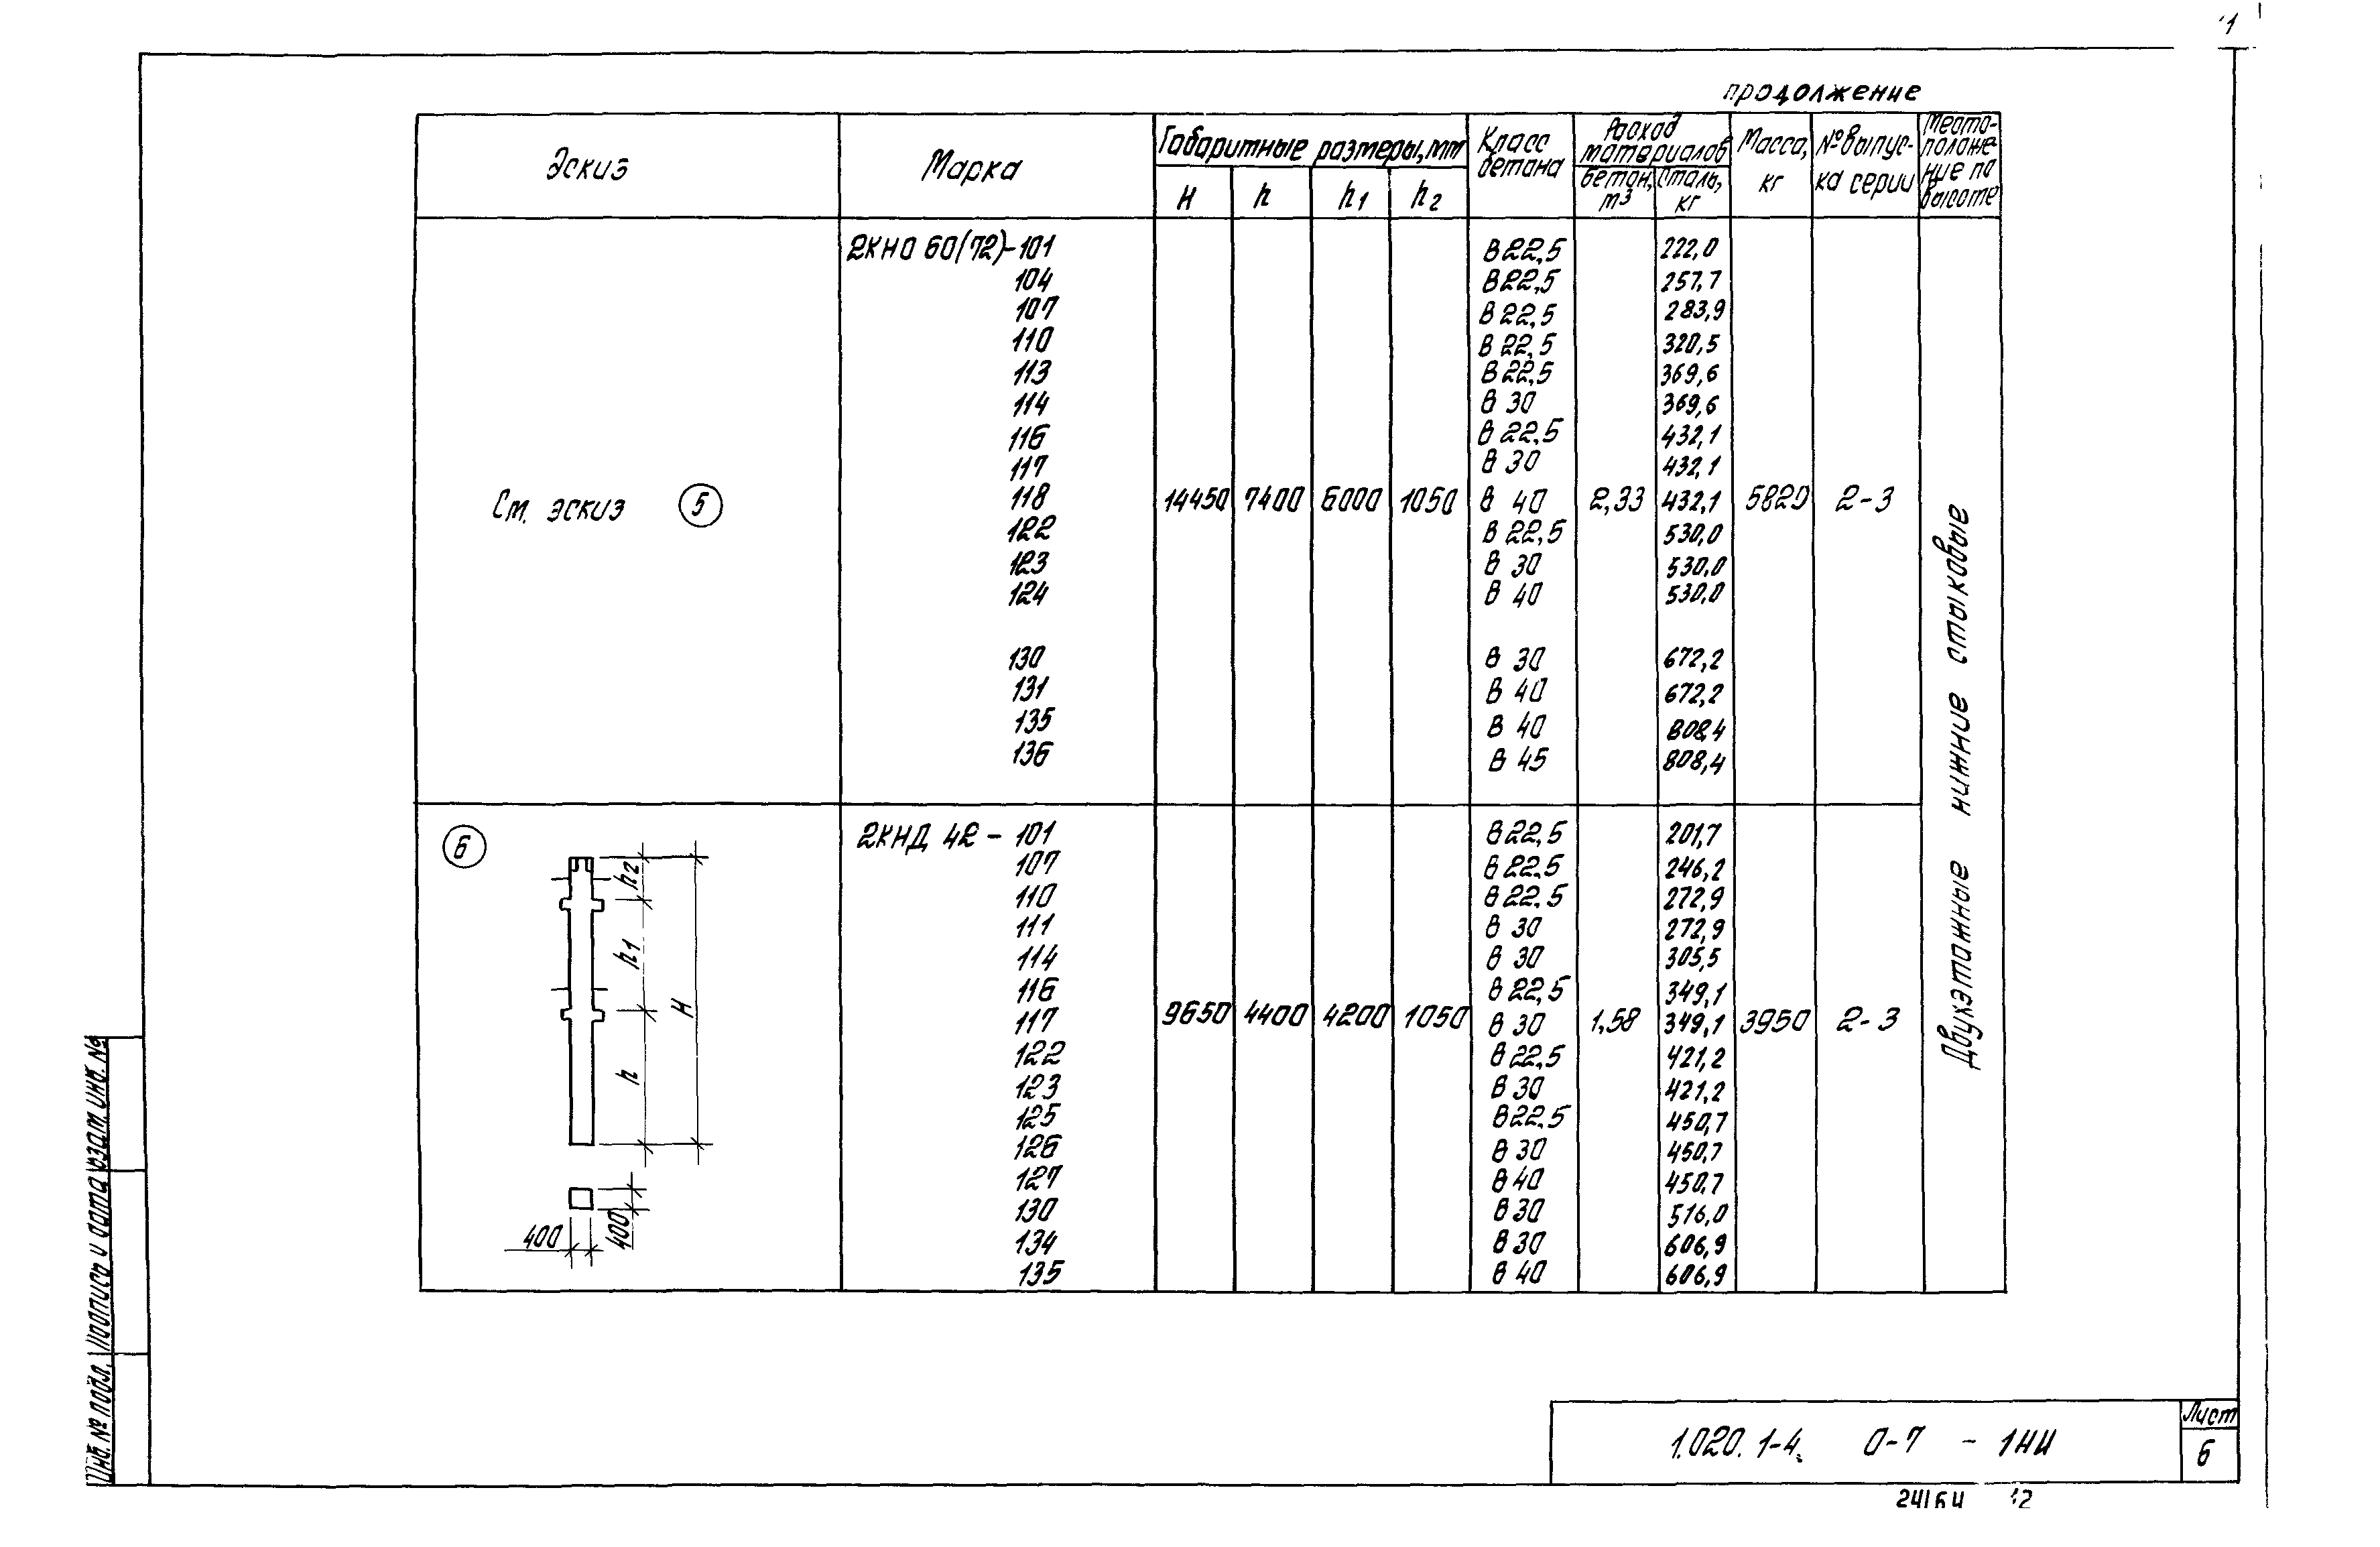 продолжение
Эскиз Марка Габаритные размеры, мм Класс бетона Расход материалов Масса, кг № выпус- ка серии Место- положе- ние по высоте
H h h1 h2 бетон, м3 сталь, кг
2КНО 60(72)-101 В22,5 222,0
104 В22,5 257,7
107 В22,5 283,9
110 В22,5 320,5
113 В22,5 369,6
114 В 30 369,6
116 В22,5 432,1
117 В 30 432,1
См. эскиз 5 118 14450 7400 6000 1050 В 40 2,33 432,1 5820 2-3
122 В22,5 530,0
123 В 30 530,0
124 В 40 530,0
130 В 30 672,2
131 В 40 672,2
135 В 40 808,4
136 В 45 808,4
Двухэтажные нижние стыковые
6 2КНД 42 - 101 В22,5 201,7
107 В22,5 246,2
110 В22,5 272,9
111 В 30 272,9
114 В 30 305,5
116 В22,5 349,1
117 9650 4400 4200 1050 В 30 1,58 349,1 3950 2-3
122 В22,5 421,2
123 В 30 421,2
125 В22,5 450,7
126 В 30 450,7
127 В 40 450,7
130 В 30 516,0
134 В 30 606,9
135 В 40 606,9
h2
h1
H
h
400
400
Инв. № подл. Подпись и дата Взам. инв. №
1.020.1-4. 0-7 - 1НИ
Лист
6
24164 12